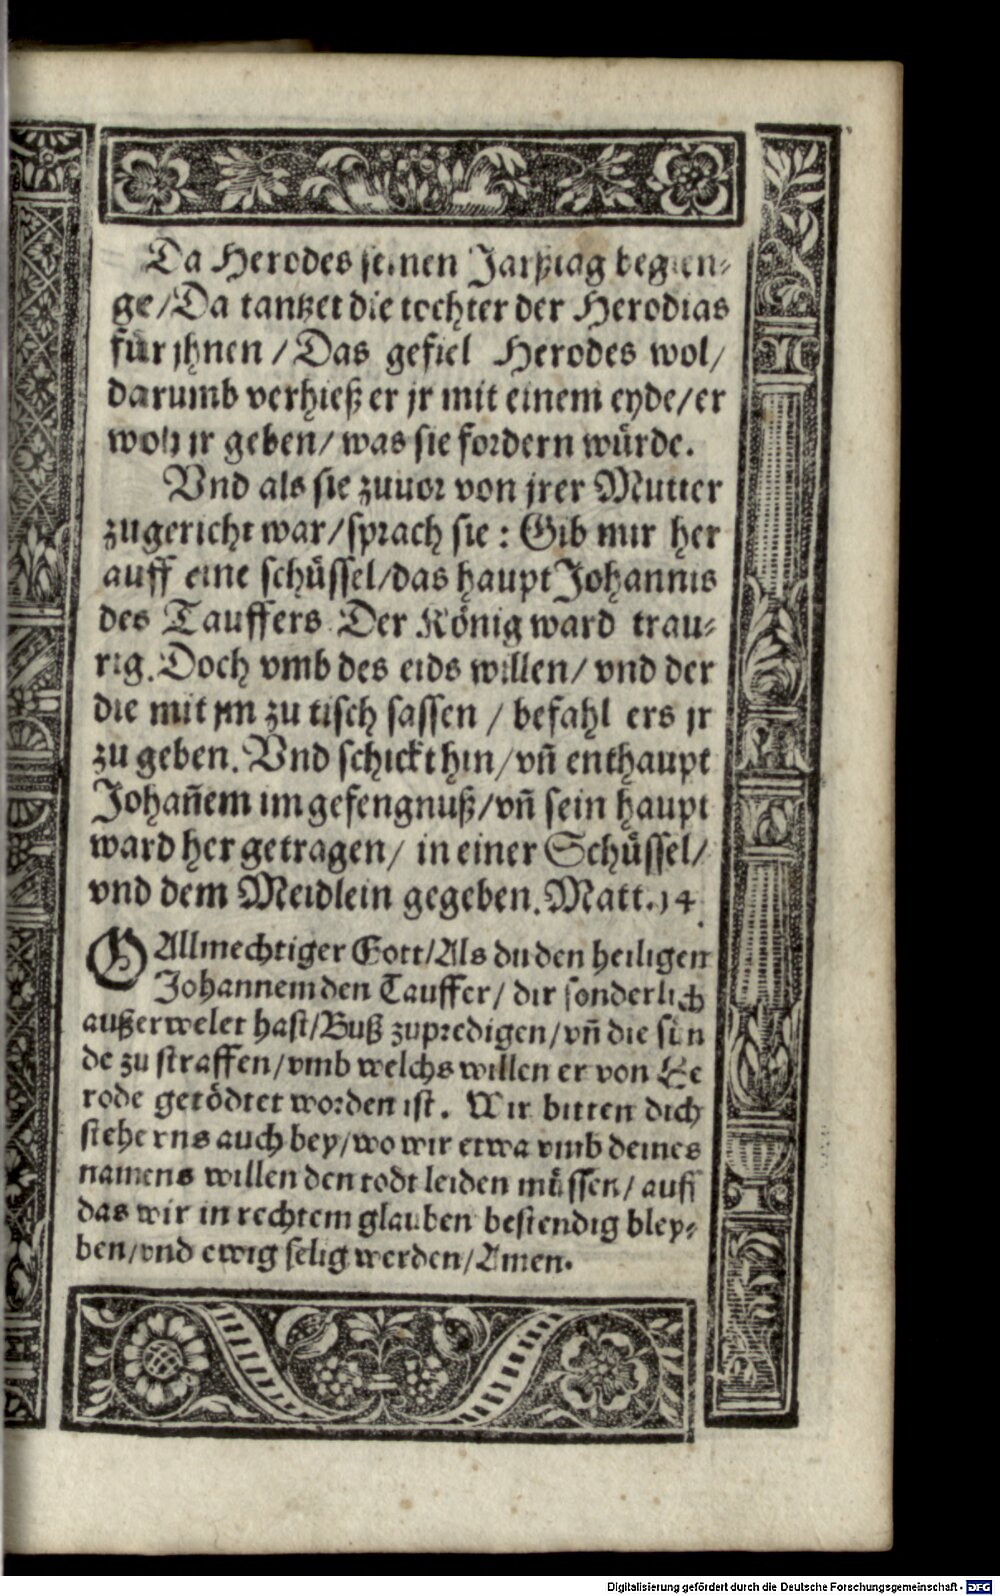 Da Herodes seinen Jarßtag begien⸗
ge/Da tantzet die tochter der Herodias
für jhnen / Das gefiel Herodes wol/
darumb verhieß er jr mit einem eyde/er
wolt jr geben/ was sie fordern würde.
Vnd als sie zuuor von jrer Mutter
zugericht war/sprach sie : Gib mir her
auff eine schüssel/das haupt Johannis
des Tauffers. Der König ward trau⸗
rig. Doch vmb des eids willen/ vnd der
die mit jm zu tisch sassen / befahl ers jr
zu geben. Vnd schickt hin/vn̄ enthaupt
Johan̄em im gefengnuß/vn̄ sein haupt
ward her getragen/ in einer Schüssel/
vnd dem Meidlein gegeben. Matt. 14.
O Allmechtiger Gott/Als du den heiligen
Johannem den Tauffer/ dir sonderlich
außerwelet hast/Buß zupredigen/vn̄ die sün
de zu straffen/vmb welchs willen er von He
rode getödtet worden ist. Wir bitten dich
stehe vns auch bey/wo wir etwa vmb deines
namens willen den todt leiden müssen/ auff
das wir in rechtem glauben bestendig bley⸗
ben/vnd ewig selig werden/Amen.
Digitalisierung gefördert durch die Deutsche Forschungsgemeinschaft - DFG